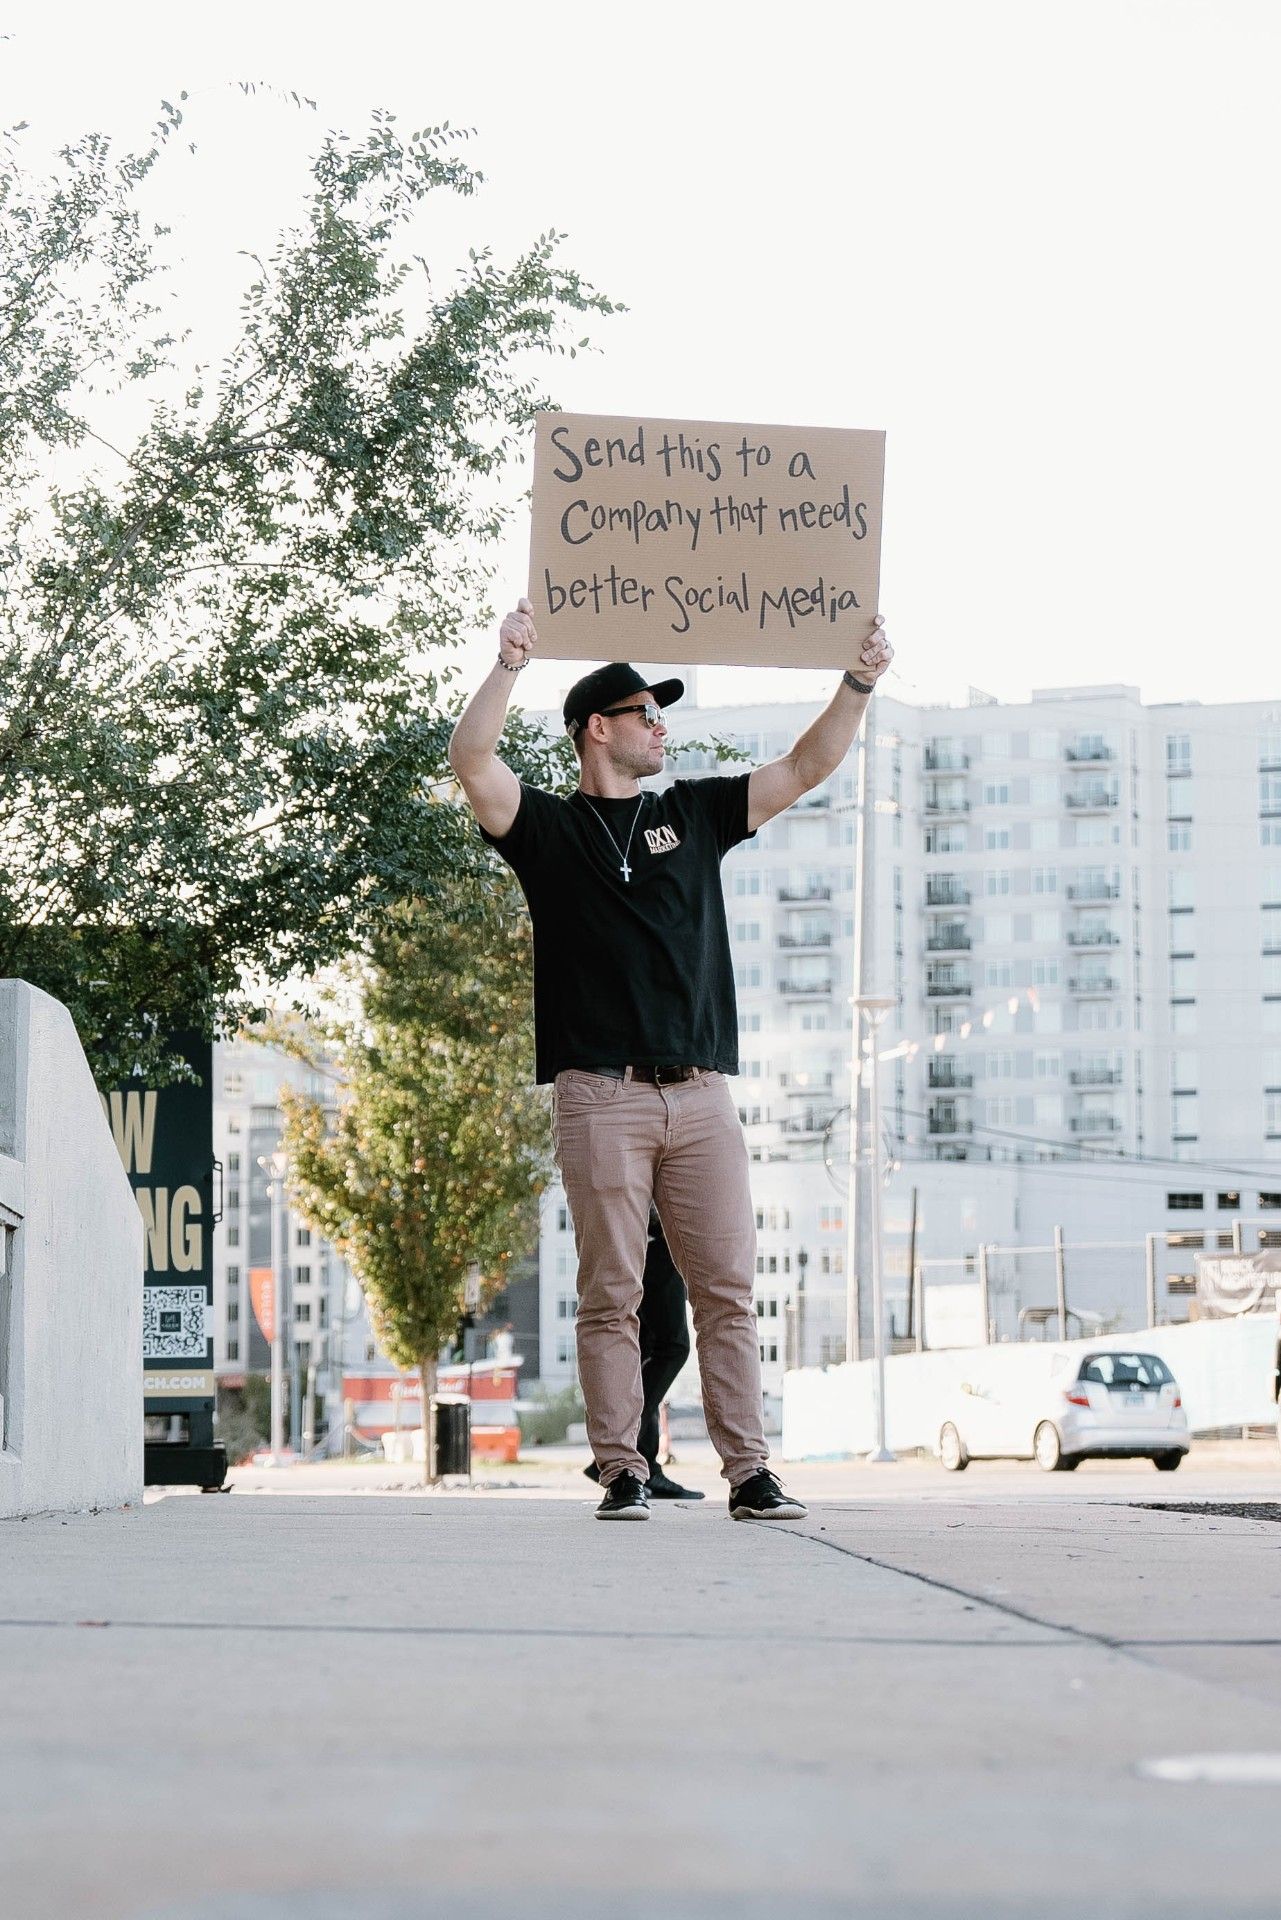 Send this to a
Company that needs
better Social Media
CXN
MARKETING
OW
NG
CH.COM